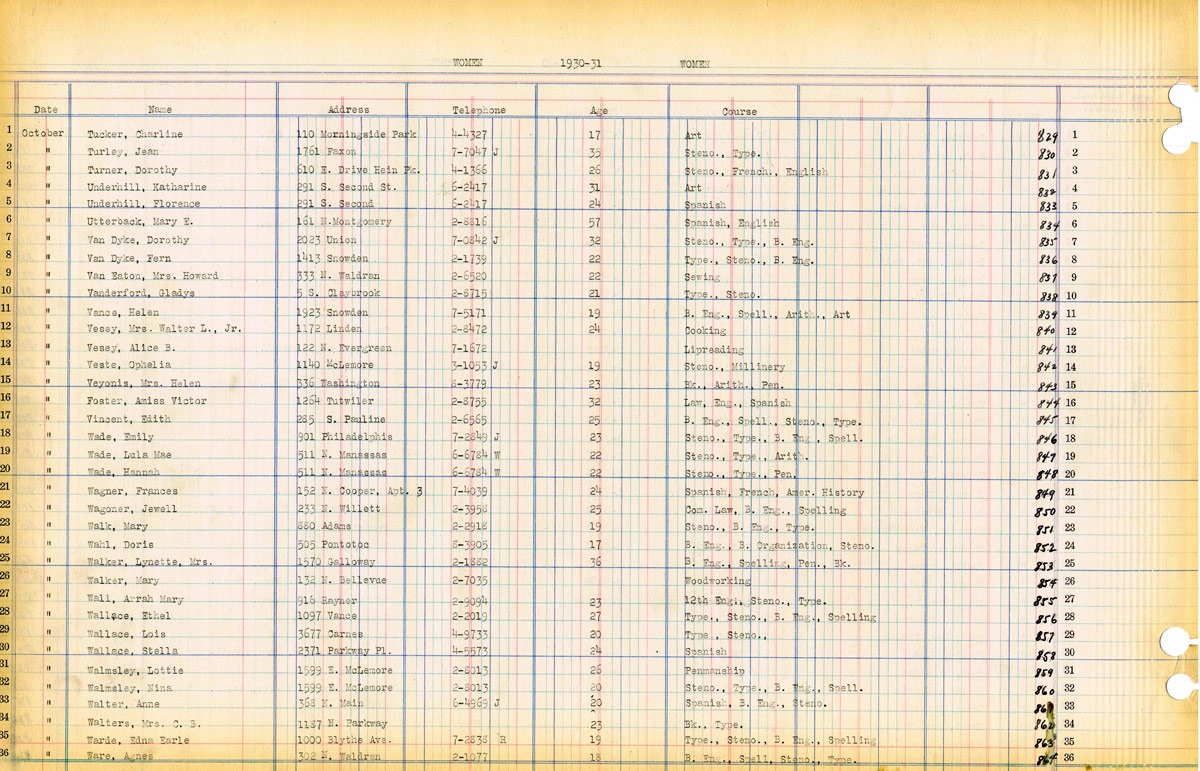 WOMEN 1930-31 WOMEN
Date Name Address Telephone Age Course
1 October Tucker, Charline 110 Morningside Park 4-4327 17 Art 829 1
2 " Turley, Jean 1761 Faxon 7-7047 J 35 Steno., Type. 830 2
3 " Turner, Dorothy 610 E. Drive Hein Pk. 4-1366 26 Steno., French., English 831 3
4 " Underhill, Katharine 291 S. Second St. 6-2417 31 Art 832 4
5 " Underhill, Florence 291 S. Second 6-2417 24 Spanish 833 5
6 " Utterback, Mary E. 161 N.Montgomery 2-8816 57 Spanish, English 834 6
7 " Van Dyke, Dorothy 2023 Union 7-0842 J 32 Steno., Type., B. Eng. 835 7
8 " Van Dyke, Fern 1413 Snowden 2-1739 22 Type., Steno., B. Eng. 836 8
9 " Van Eaton, Mrs. Howard 333 N. Waldran 2-6520 22 Sewing 837 9
10 " Vanderford, Gladys 5 S. Claybrook 2-8715 21 Type., Steno. 838 10
11 " Vance, Helen 1923 Snowden 7-5171 19 B. Eng., Spell., Arith., Art 839 11
12 " Vesey, Mrs. Walter L., Jr. 1172 Linden 2-8472 24 Cooking 840 12
13 " Vesey, Alice B. 122 N. Evergreen 7-1672 Lipreading 841 13
14 " Veste, Ophelia 1140 McLemore 3-1053 J 19 Steno., Millinery 842 14
15 " Veyonis, Mrs. Helen 336 Washington 8-3779 23 Bk., Arith., Pen. 843 15
16 " Foster, Amiss Victor 1264 Tutwiler 2-8755 32 Law, Eng., Spanish 844 16
17 " Vincent, Edith 285 S. Pauline 2-6565 25 B. Eng., Spell., Steno., Type. 845 17
18 " Wade, Emily 901 Philadelphis 7-2849 J 23 Steno., Type., B. Eng., Spell. 846 18
19 " Wade, Lula Mae 511 N. Manassas 6-6784 W 22 Steno., Type., Arith. 847 19
20 " Wade, Hannah 511 N. Manassas 6-6784 W 22 Steno., Type., Pen. 848 20
21 " Wagner, Frances 152 N. Cooper, Apt. 3 7-4039 24 Spanish, French, Amer. History 849 21
22 " Wagoner, Jewell 233 N. Willett 2-3958 25 Com. Law, B. Eng., Spelling 850 22
23 " Walk, Mary 880 Adams 2-2918 19 Steno., B. Eng., Type. 851 23
24 " Wahl, Doris 505 Pontotoc 8-3905 17 B. Eng., B. Organization, Steno. 852 24
25 " Walker, Lynette, Mrs. 1570 Galloway 2-1882 36 B. Eng., Spelling, Pen., Bk. 853 25
26 " Walker, Mary 132 N. Bellevue 2-7035 Woodworking 854 26
27 " Wall, Arrah Mary 916 Rayner 2-9094 23 12th Eng., Steno., Type. 855 27
28 " Wallace, Ethel 1097 Vance 2-2019 27 Type., Steno., B. Eng., Spelling 856 28
29 " Wallace, Lois 3677 Carnes 4-9733 20 Type., Steno., 857 29
30 " Wallace, Stella 2371 Parkway Pl. 4-5573 24 Spanish 858 30
31 " Walmsley, Lottie 1599 E. McLemore 2-8013 26 Penmanship 859 31
32 " Walmsley, Nina 1599 E. McLemore 2-8013 20 Steno., Type., B. Eng., Spell. 860 32
33 " Walter, Anne 368 N. Main 6-4969 J 20 Spanish, B. Eng., Steno. 33
34 " Walters, Mrs. C. B. 1187 N. Parkway 23 Bk., Type. 862 34
35 " Warde, Edna Earle 1000 Blythe Ave. 7-2838 R 19 Type., Steno., B. Eng., Spelling 863 35
36 " Ware, Agnes 302 N. Waldran 2-1077 18 B. Eng., Spell, Steno., Type. 864 36